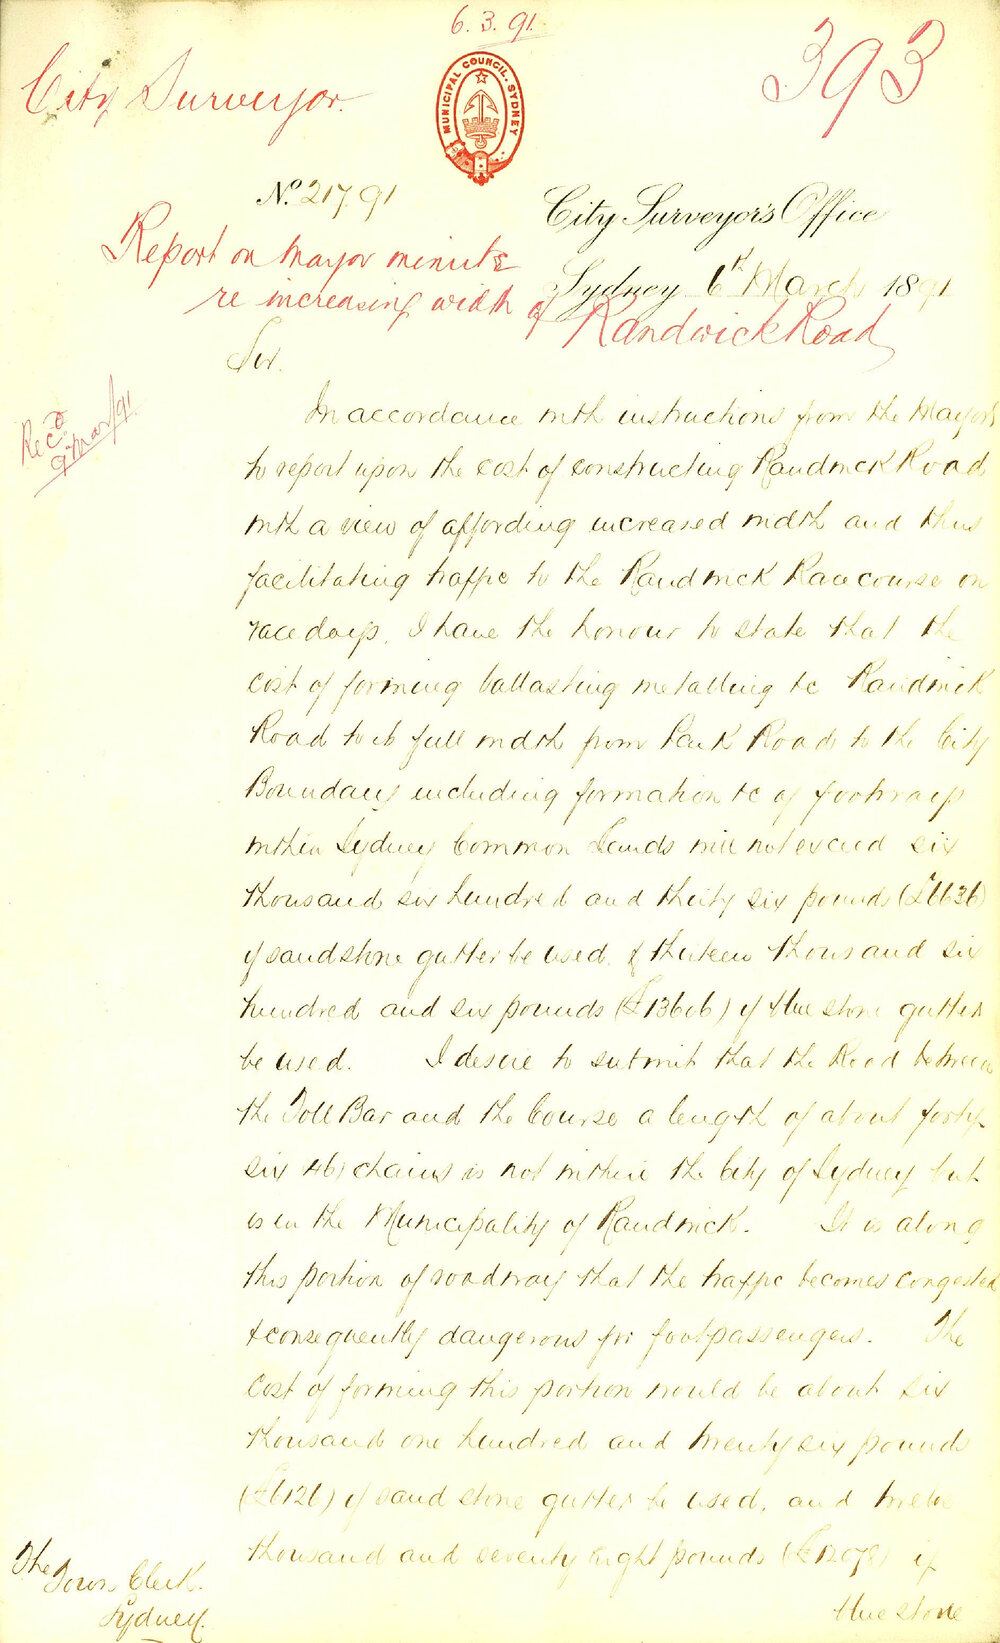 6. 3. 91.
City Surveyor.
393
MUNICIPAL COUNCIL. SYDNEY
No. 217. 91
City Surveyor's Office
Report on Mayor minute
Sydney 6th March 1891
re increasing width of Randwick Road
Sir.
Recd
9 Mar/91
In accordance with instructions from the Mayor
to report upon the cost of constructing Randwick Road
with a view of affording increased width and thus
facilitating traffic to the Randwick Racecourse on
race days, I have the honour to state that the
cost of forming ballasting metalling &c Randwick
Road to its full width from Park Road to the City
Boundary including formation &c of footways
within Sydney Common Lands will not exceed six
thousand six hundred and thirty six pounds (£6636)
if sandstone gutter be used, & thirteen thousand six
hundred and six pounds (£13606) if blue stone gutter
be used. I desire to submit that the Road between
the Toll Bar and the Course a length of about forty
six 46) chains is not within the City of Sydney but
is in the Municipality of Randwick. It is along
this portion of roadway that the traffic becomes congested
& consequently dangerous for footpassengers. The
cost of forming this portion would be about six
thousand one hundred and twenty six pounds
(£6126) if sand stone gutter be used, and twelve
thousand and seventy eight pounds (£12078) if
blue stone
The
Town Clerk.
Sydney.